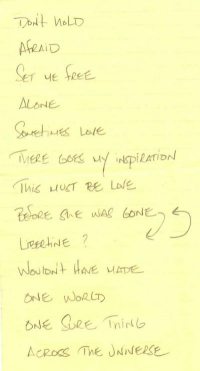 DON'T HOLD
AFRAID
SET ME FREE
ALONE
SOMETIMES LOVE
THERE GOES MY INSPIRATION
THIS MUST BE LOVE
BEFORE SHE WAS GONE
LIBERTINE ?
WOULDN'T HAVE MADE
ONE WORLD
ONE SURE THING
ACROSS THE UNIVERSE